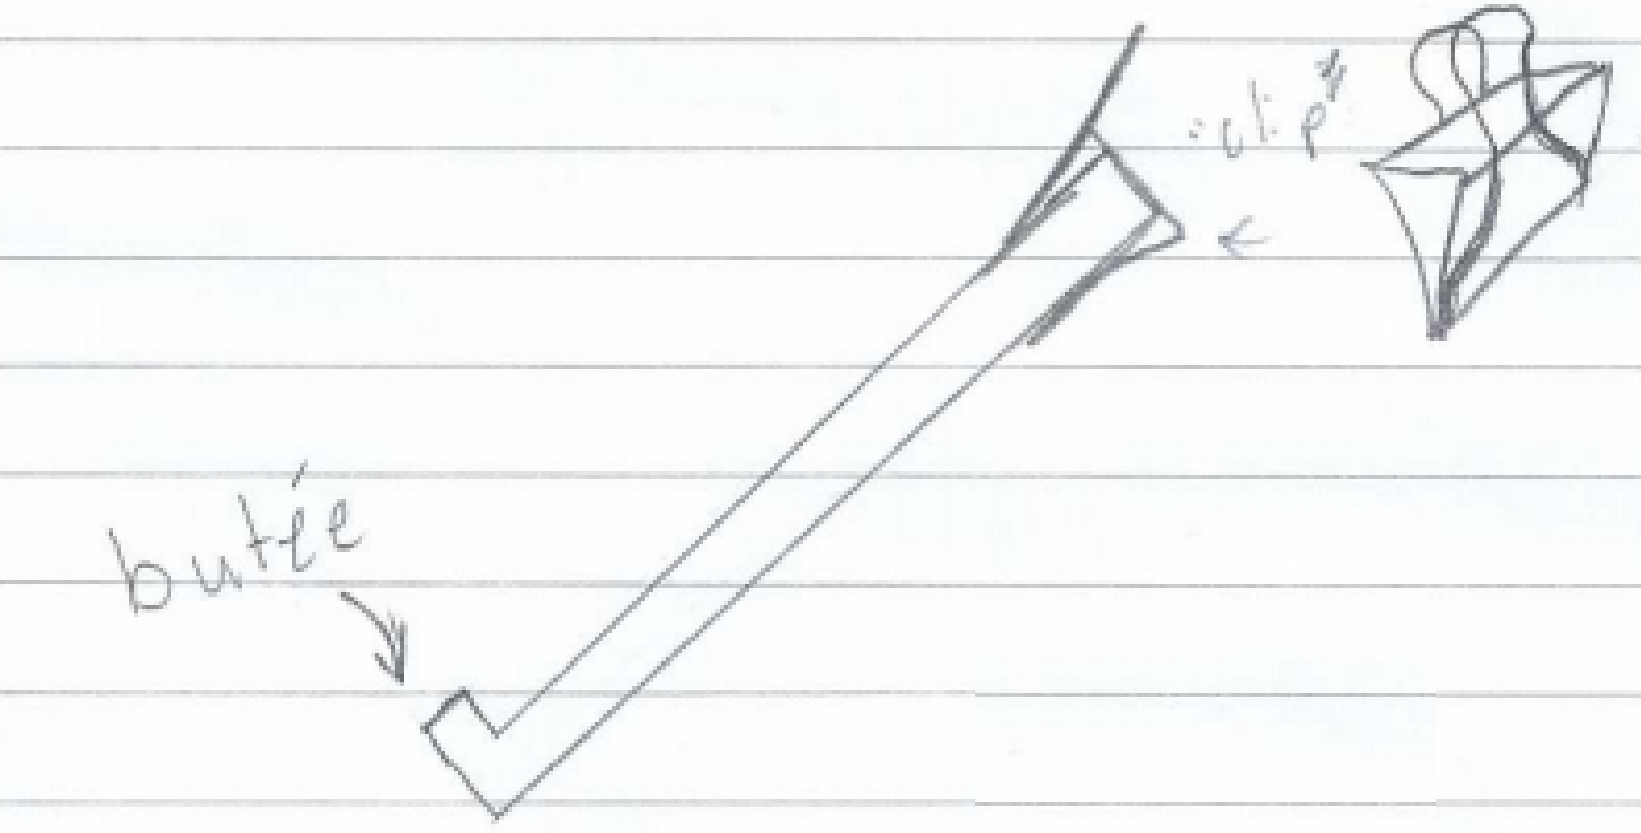 "clip"
butée